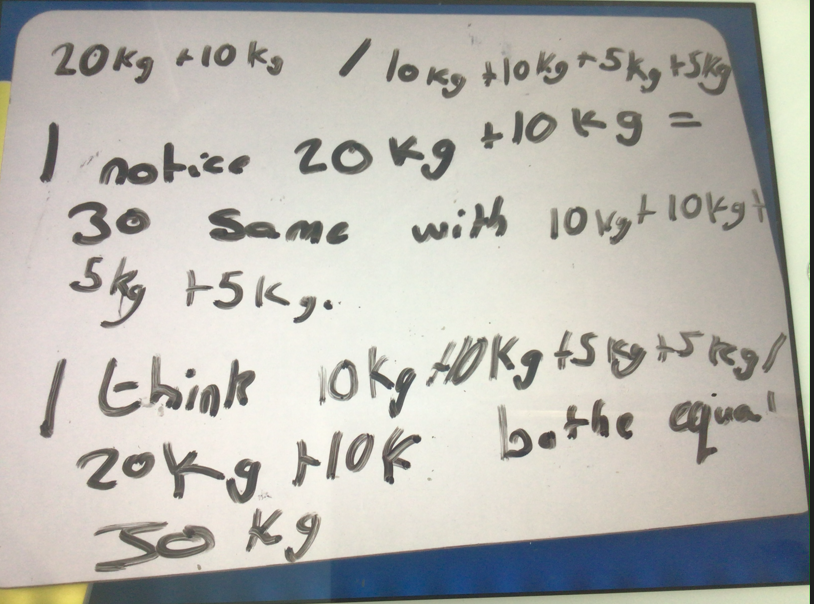 20kg +10kg / 10kg +10kg +5kg +5kg
I notice 20kg +10kg =
30 same with 10kg + 10kg +
5kg +5kg.
I think 10kg +10kg +5kg +5kg /
20kg +10k bothe equal
30 kg